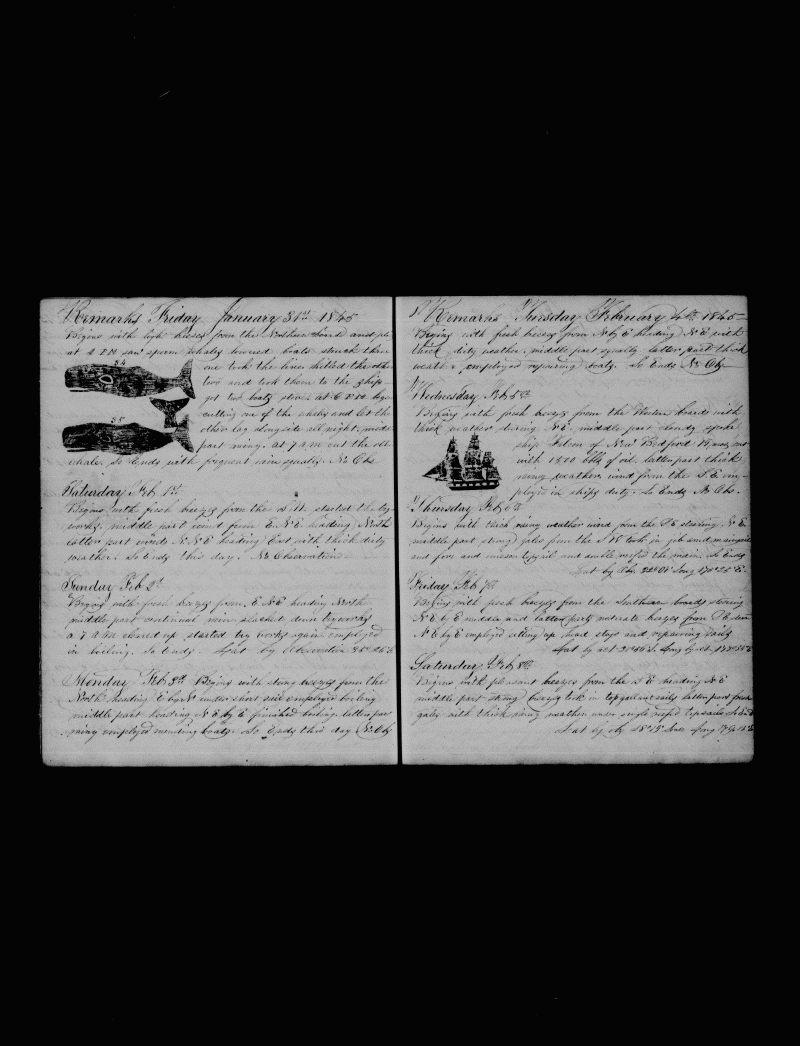 Remarks Friday January 31st 1845
Begins with light breezes from the Northern board and
at 2 PM saw sperm whales lowered boats struck three
54
one took the lines killed the other
two and took them to the ship
got two boats stoven at 6 PM began
cutting one of the whales and let the
55
other lay alongside all night. middle
part rainy. at 7 AM cut the other
whale. So Ends with frequent rain squalls. No Obs
Saturday Feb 1st
Begins with fresh breezes from the started the try
works. middle part wind from E.N.E heading North
latter part winds N.N.E heading East with thick dirty
weather. So Ends this day. No Observation
Sunday Feb 2d
Begins with fresh breezes from E.N.E heading North
middle part continual rain. down tryworks
a 7 AM cleared up started try works again employed
in boiling. So Ends. Lat by Observation
Monday Feb 3d Begins with strong breezes from the
North heading E by N under short sail employed boiling
middle part heading N E by E finished boiling. latter part
rainy employed mending boats. So Ends this day No Obs
Remarks Tuesday February 4th 1845
Begins with fresh breezes from N by E heading N E with
thick dirty weather. middle part squally latter part thick
weather employed repairing boats. So Ends No Obs
Wednesday Feb 5th
Begins with fresh breezes from the Western boards with
thick weather steering N.E. middle part cloudy spoke
ship of New Bedford out
with 1500 bbls of oil. latter part thick
rainy weather wind from the S E em-
ployed in ships duty. So Ends No Obs.
Thursday Feb 6th
Begins with thick rainy weather wind from the S E steering N E.
middle part strong gales from the took in jib and mainsail
and fore and mizen topsail and double reefed the main. So Ends
Lat by Obs Long
Friday Feb 7th
Begins with fresh breezes from the Southern boards steering
N E by E middle and latter parts moderate breezes from
N E by E employed setting up head stays and repairing sails
Lat by Long by
Saturday Feb 8th
Begins with pleasant breezes from the S E heading N E
middle part strong breezes took in topgallant sails latter part fresh
gales with thick rainy weather under single reefed topsails So Ends
Lat by Long